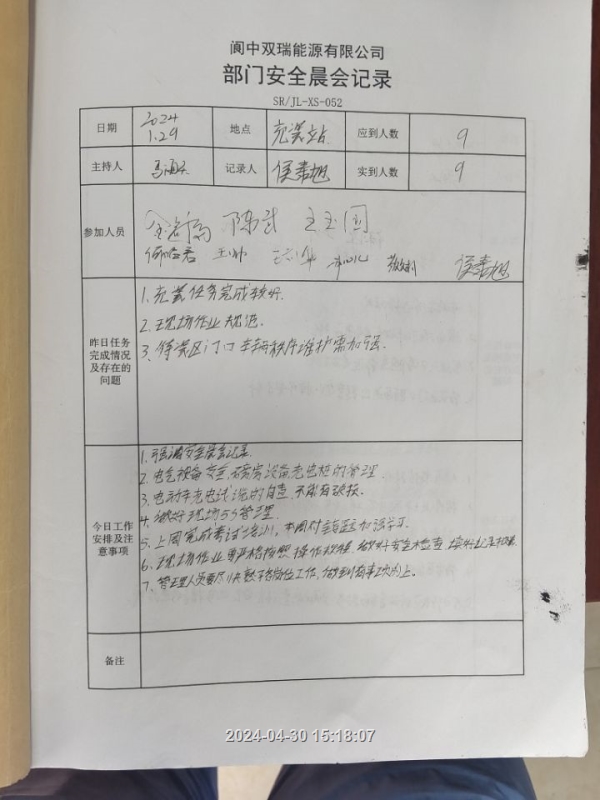 阆中双瑞能源有限公司
部门安全晨会记录
SR/JL-XS-052
日期 2024 1.29 地点 充装站 应到人数 9
主持人 记录人 侯春旭 实到人数 9
参加人员 陈武 王玉国
王帅 侯春旭
昨日任务完成情况及存在的问题
1. 充装任务完成较好.
2. 现场作业规范.
3. 待装区门口车辆秩序维护需加强.
今日工作安排及注意事项
1. 强调安全晨会记录.
2. 电气设备安全, 设备充电桩的管理.
3. 电动车充电线的自查, 不能有破损.
4. 做好现场5S管理.
5. 上周完成考试培训, 本周对 加强学习.
6. 现场作业要严格按照操作规程, 做好安全检查,
7. 管理人员要尽职 岗位工作, 做到
备注
2024-04-30 15:18:07